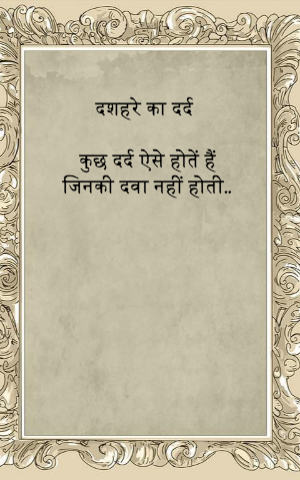 दशहरे का दर्द
कुछ दर्द ऐसे होतें हैं
जिनकी दवा नहीं होती..